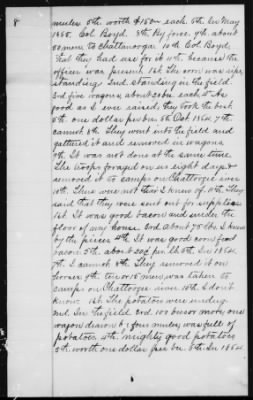 8
mules 5th worth $150 each 6th In May
1865. Col Boyd. 8th By force 9th about
50 more to Chattanooga 10th Col Boyd,
that they had use for it 11th because the
officer was present 1st The corn was ripe
standing 2nd Standing in the field.
3rd five wagons about 20 bu each 4th As
good as I ever raised, they took the best
5th one dollar per bu. 6th Oct 1864 7th
cannot 8th They went into the field and
gathered it and removed in wagons
9th It was not done at the same time.
The troops foraged on us eight days &
removed it to camps on Chattooga river
10th There were not that I know of 11th They
said that they were sent out for supplies
1st It was good bacon and under the
floor of my house 3rd about 75 lbs I knew
by the pieces 4th It was good corn food
bacon 5th about 20¢ per lb 6th In 1864
7th I cannot 8th They removed it on
horses 9th ten or 15 men, was taken to
camps on Chattooga river 10th I don't
know. 1st The potatoes were undug
2nd In the field 3rd 100 bu or more, one
wagon drawn by four mules was full of
potatoes 4th mighty good potatoes
5th worth one dollar per bu. 6th In 1864